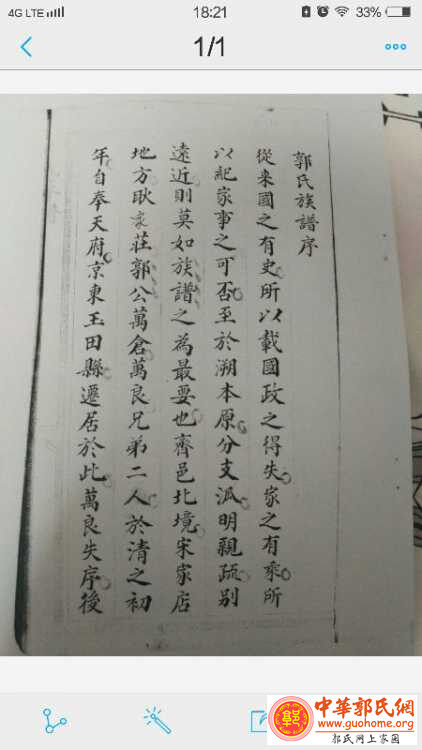 4G LTE 18:21 33%
1/1
郭氏族譜序
從来國之有史所以載國政之得失家之有乘所
以紀家事之可否至於溯本原分支派明親疏别
遠近則莫如族譜之為最要也齊邑北境宋家店
地方耿家莊郭公萬倉萬良兄弟二人於清之初
年自奉天府京東玉田縣遷居於此萬良失序後
中華郭氏網
www.guohome.org
郭氏网上家园